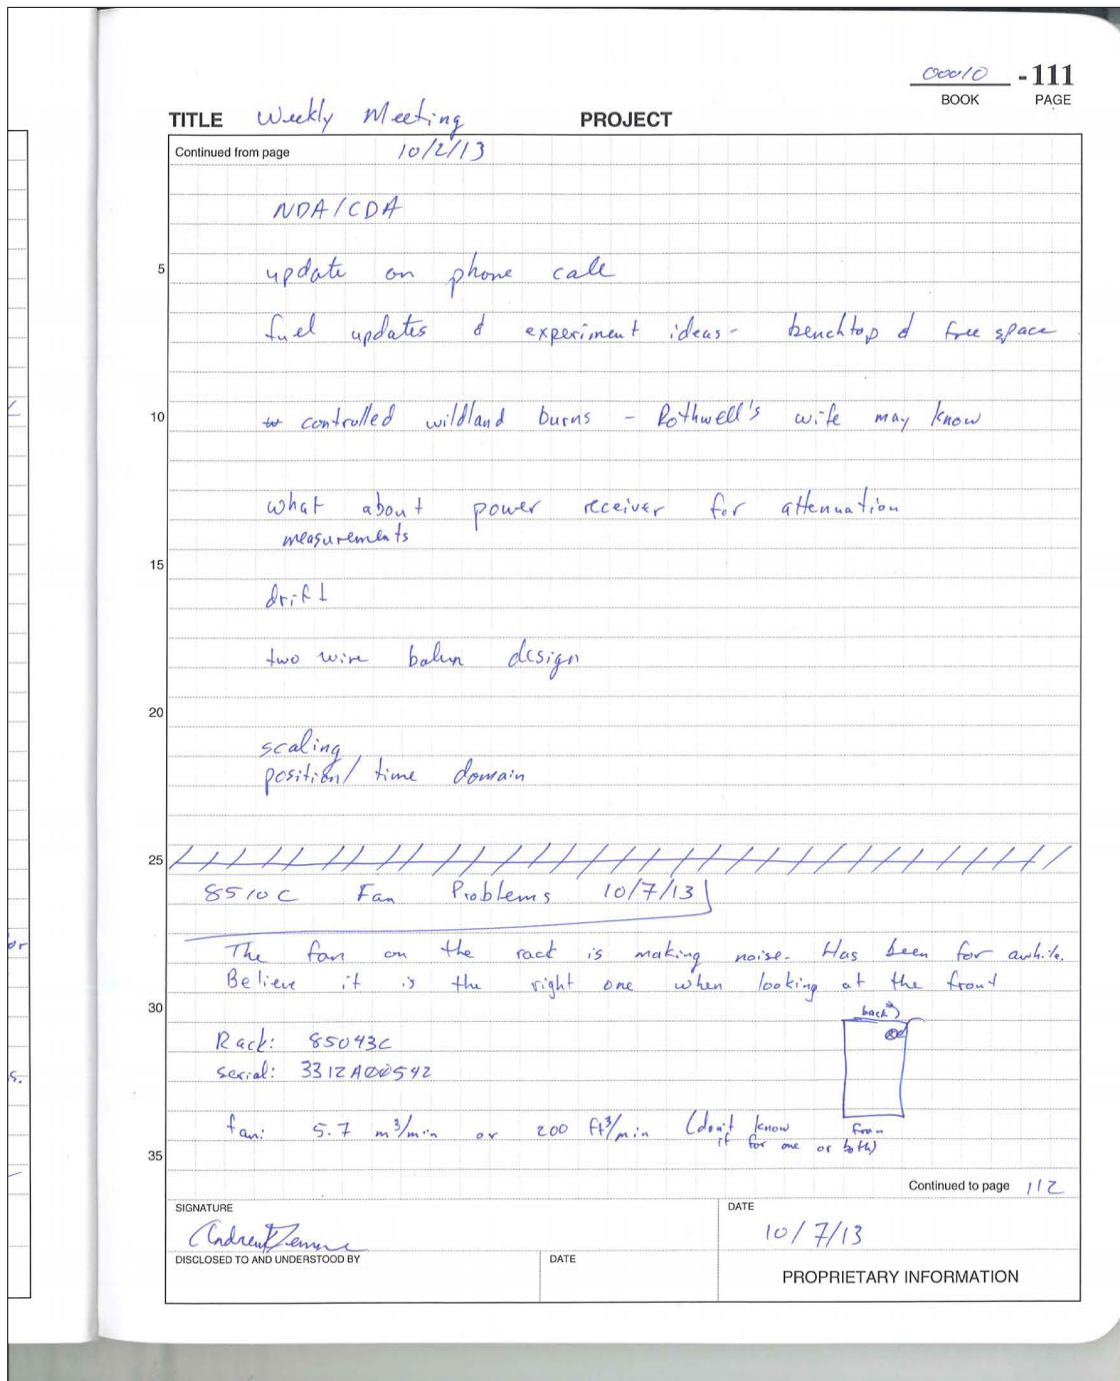 00010 -111
BOOK PAGE
TITLE Weekly Meeting PROJECT
Continued from page 10/2/13
NDA/CDA
5
update on phone call
fuel updates & experiment ideas - benchtop & free space
10
controlled wildland burns - Rothwell's wife may know
what about power receiver for attenuation
measurements
15
drift
two wire balun design
20
scaling
position/time domain
25
8510C Fan Problems 10/7/13
The fan on the rack is making noise. Has been for awhile.
Believe it is the right one when looking at the front
30
back
Rack: 85043C
serial: 3312A00542
fan: 5.7 m³/min or 200 ft³/min (don't know
if for one or both)
35
Continued to page 112
SIGNATURE DATE
10/7/13
DISCLOSED TO AND UNDERSTOOD BY DATE
PROPRIETARY INFORMATION
or
s.